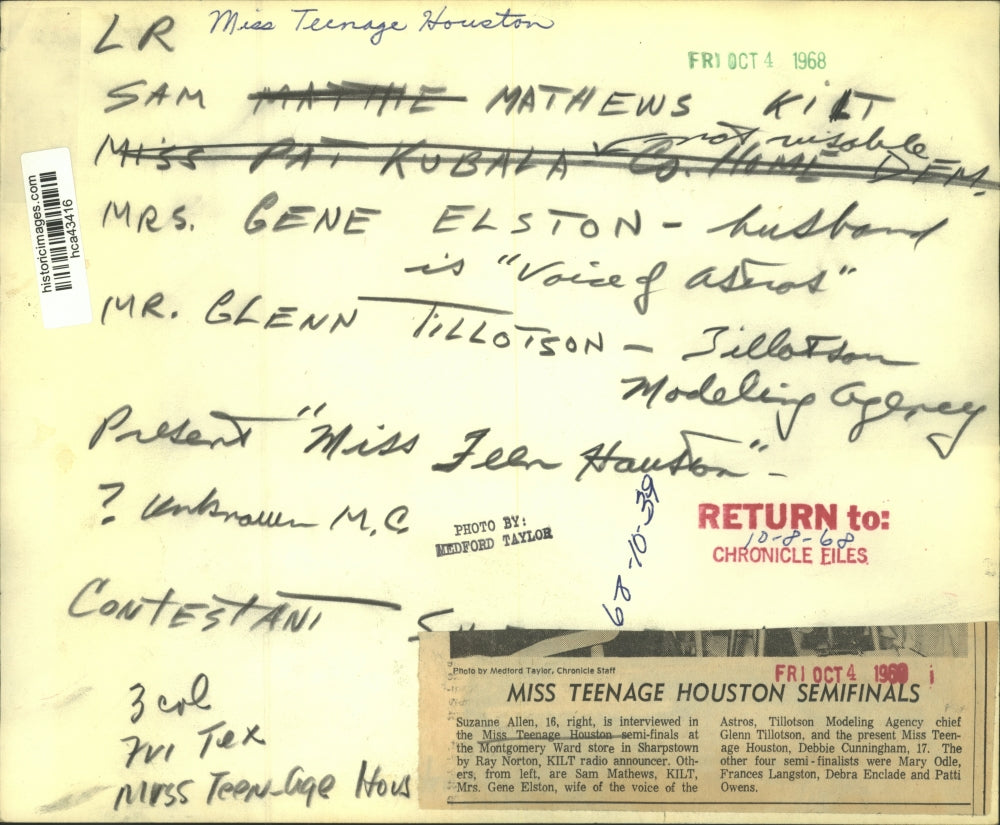 LR Miss Teenage Houston
FRI OCT 4 1968
SAM MATTHE MATHEWS KILT
not visable
MISS PAT KUBALA - CO. HOME DEM.
MRS. GENE ELSTON - husband
is "Voice of Astros"
MR. GLENN TILLOTSON - Tillotson
Modeling Agency
Present "Miss Teen Houston" -
? unknown M.C.
PHOTO BY:
MEDFORD TAYLOR
68-10-39
RETURN to:
10-8-68
CHRONICLE FILES
CONTESTANT
3 col
Tex
Miss Teen-Age Hous
historicimages.com
hca43416
Photo by Medford Taylor, Chronicle Staff
FRI OCT 4
MISS TEENAGE HOUSTON SEMIFINALS
Suzanne Allen, 16, right, is interviewed in
the Miss Teenage Houston semi-finals at
the Montgomery Ward store in Sharpstown
by Ray Norton, KILT radio announcer. Oth-
ers, from left, are Sam Mathews, KILT,
Mrs. Gene Elston, wife of the voice of the
Astros, Tillotson Modeling Agency chief
Glenn Tillotson, and the present Miss Teen-
age Houston, Debbie Cunningham, 17. The
other four semi-finalists were Mary Odle,
Frances Langston, Debra Enclade and Patti
Owens.